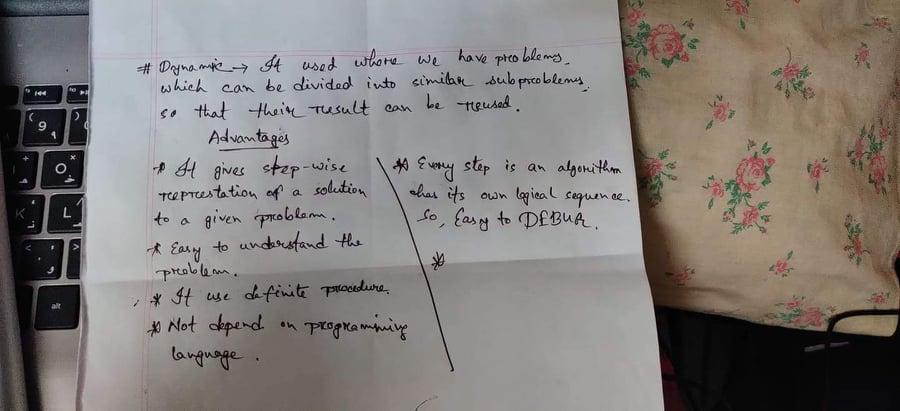 # Dynamic → It used where we have problems,
which can be divided into similar subproblems,
so that their result can be reused.
Advantages
* It gives step-wise
represtation of a solution
to a given problem.
* Easy to understand the
problem.
* It use definite procedure.
* Not depend on programmining
language.
* Every step is an algorithm
has its own logical sequence.
So, Easy to DEBUR.
*
9
O
K
L
alt